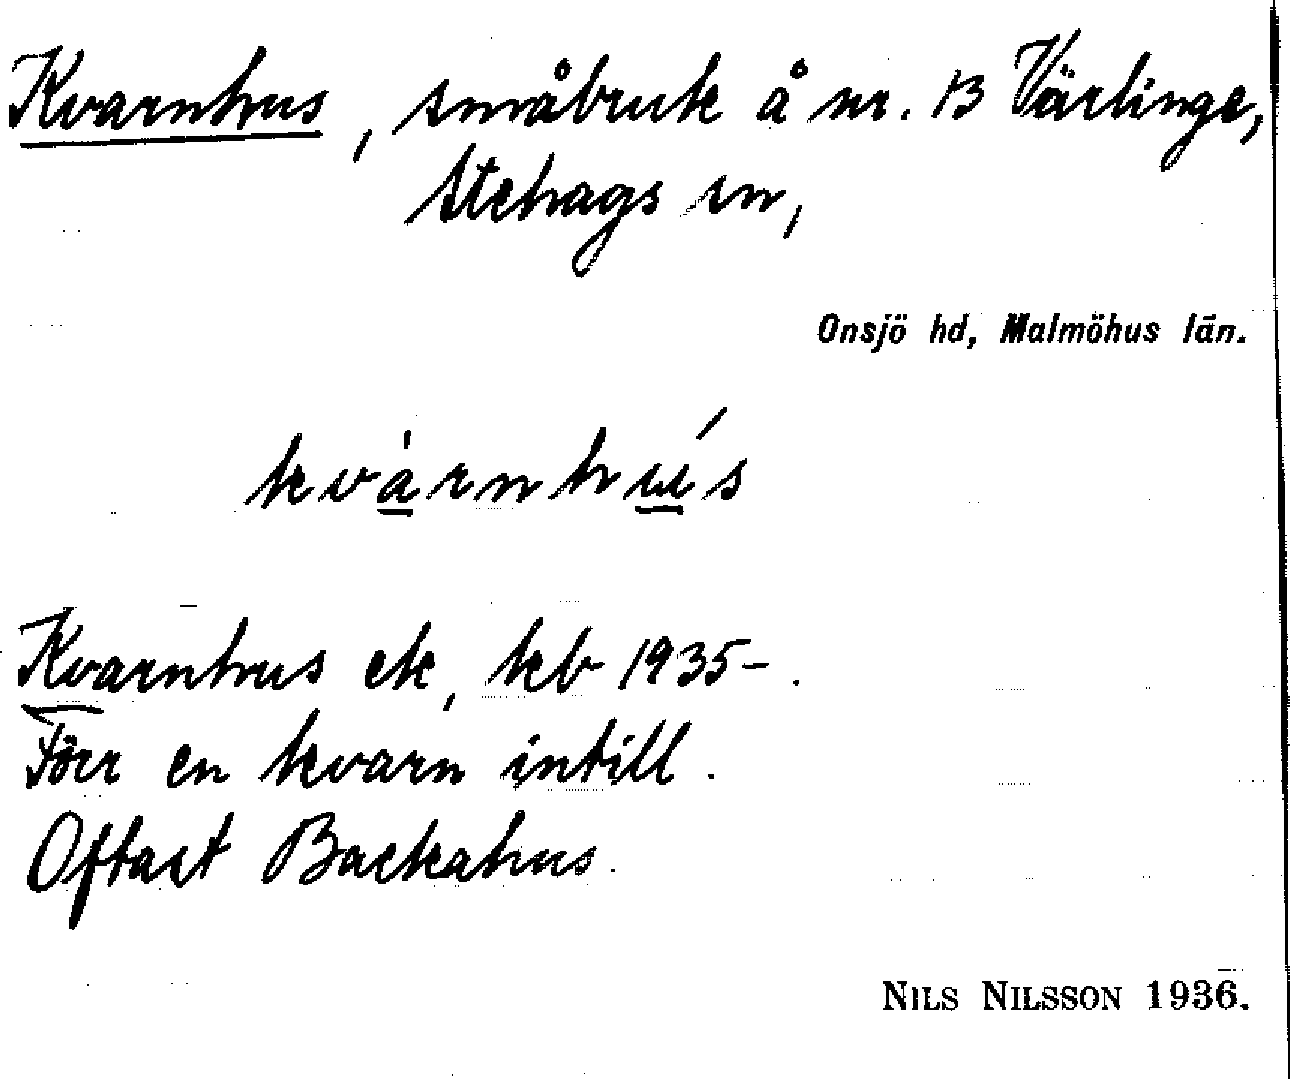 Kvarnhus, småbruk å nr. 13 Värlinge,
Stehags sn,
Onsjö hd, Malmöhus län.
kvarnhus
Kvarnhus ek, kb 1935-.
Förr en kvarn intill.
Oftast Backahus.
NILS NILSSON 1936.